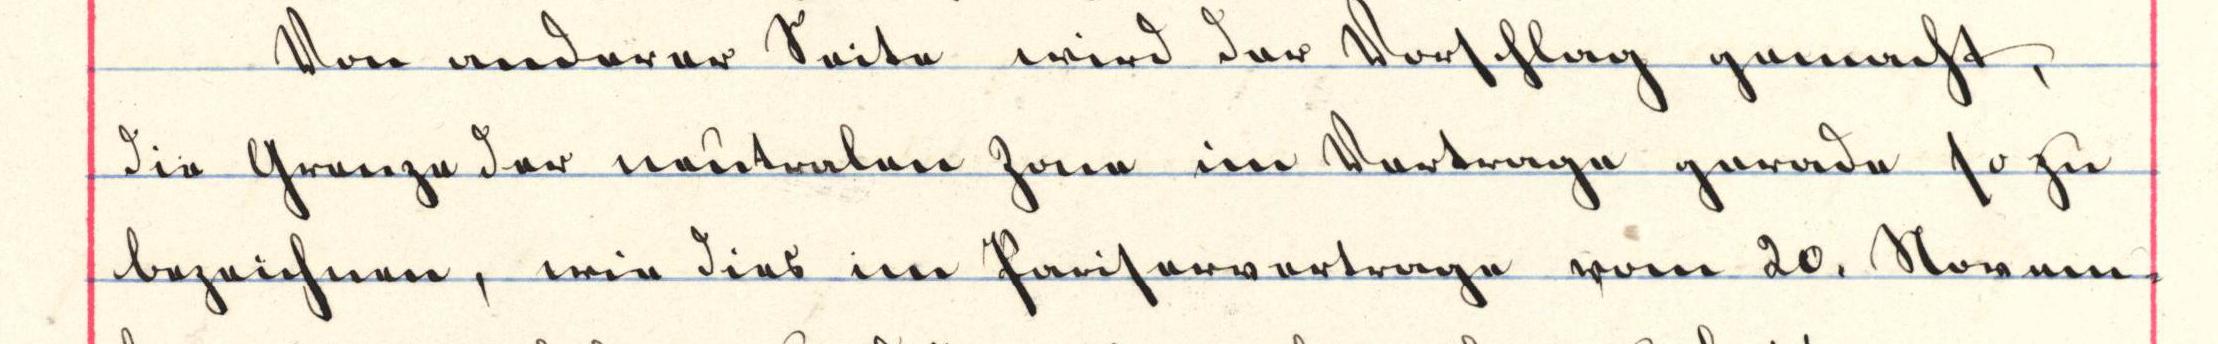 Von anderer Seite wird der Vorschlag gemacht,
die Grenze der neutralen Zone im Vertrage gerade so zu
bezeichnen, wie dies im Pariservertrage vom 20. Novem-